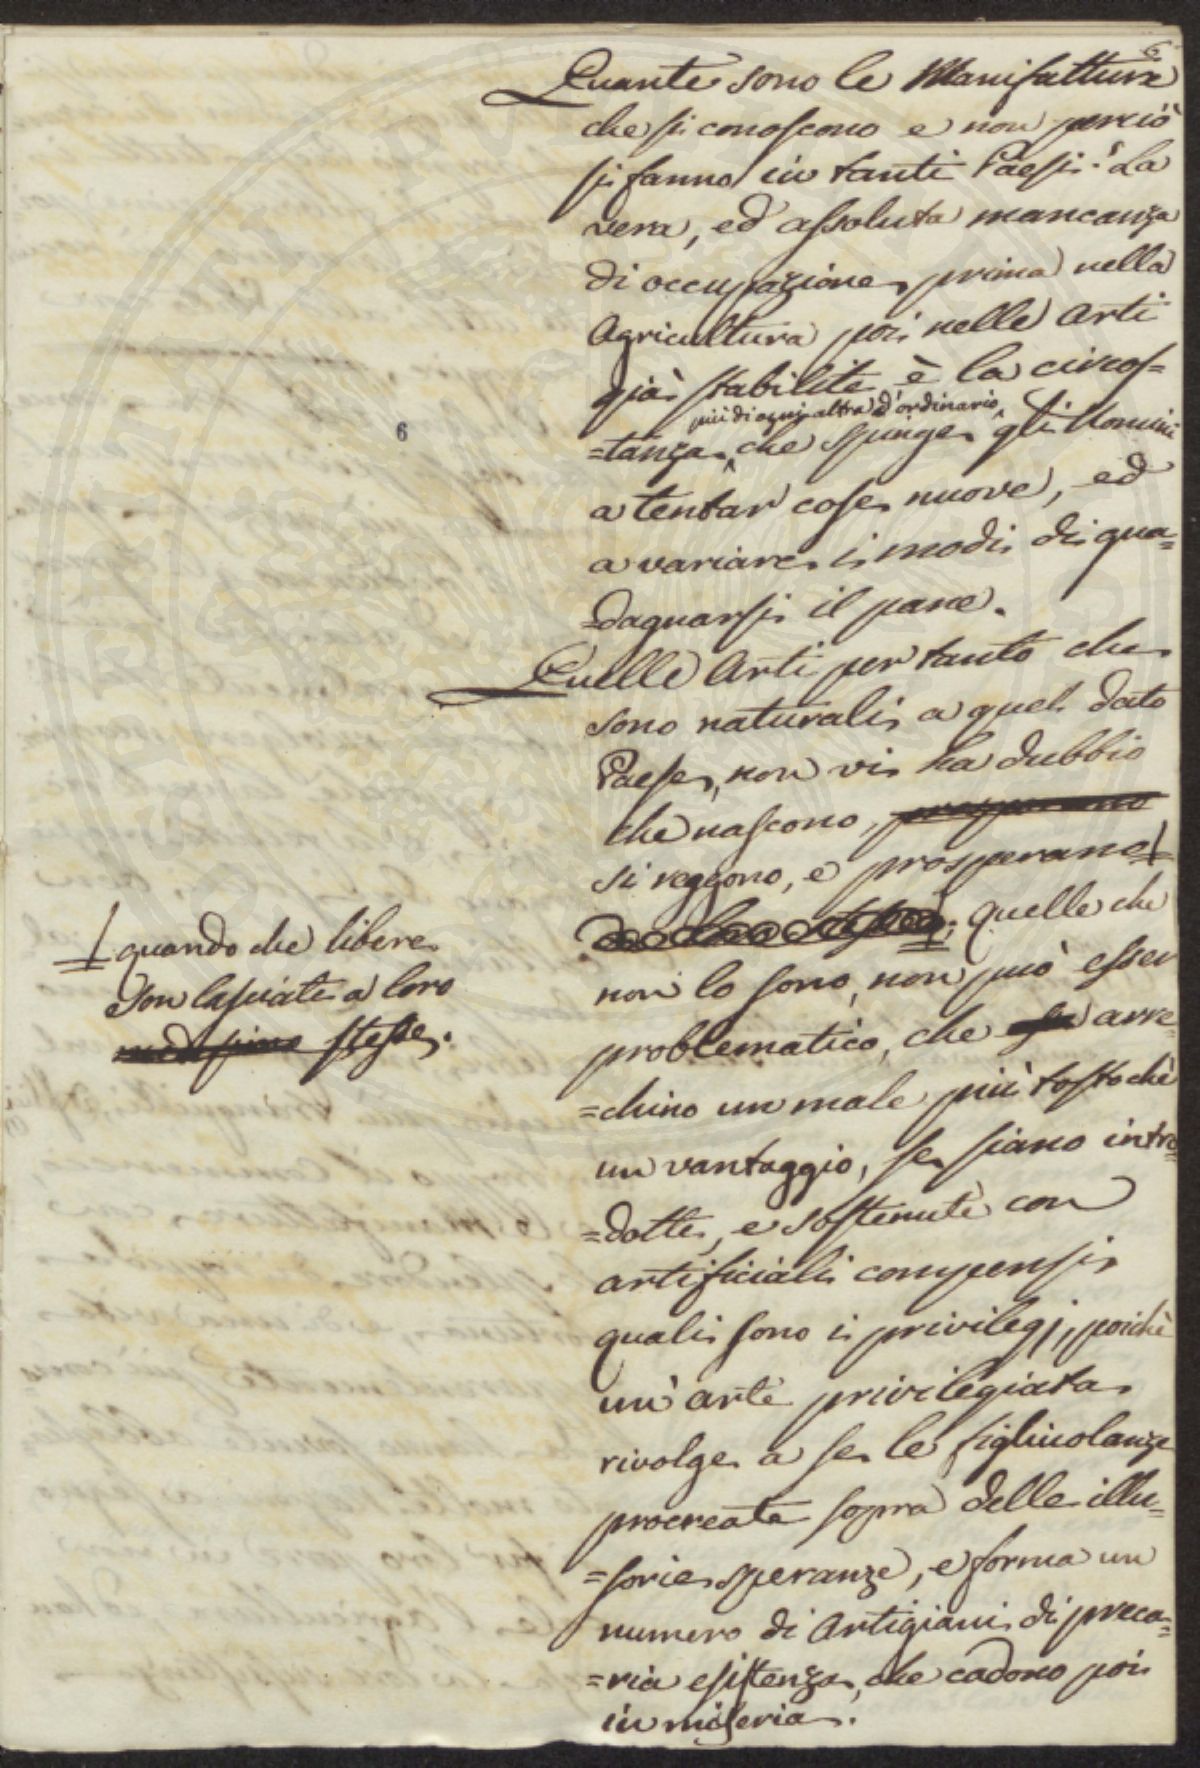 6
Quante sono le Manifatture
che si conoscono e non perciò
si fanno in tanti Paesi! La
vera, ed assoluta mancanza
di occupazione, prima nella
Agricultura poi nelle Arti
già stabilite, è la circos=
più di ogni altra d'ordinario
=tanza, che spinge gli Uomini
a tentar cose nuove, ed
a variare i modi di gua=
=dagnarsi il pane.
Quelle Arti per tanto che
sono naturali a quel dato
Paese, non vi ha dubbio
che nascono, prosperano
si reggono, e prosperano
quelle che
non lo sono, non può esser
problematico, che arre=
=chino un male più tosto chè
un vantaggio, se siano intro=
=dotte, e sostenute con
artificiali compensi
quali sono i privilegj, poichè
un'arte privilegiata
rivolge a se le figliuolanze
procreate sopra delle illu=
=sorie speranze, e forma un
numero di Artigiani di preca=
=ria esistenza, che cadono poi
in miseria.
6
quando che libere
son lasciate a loro
medesime stesse.